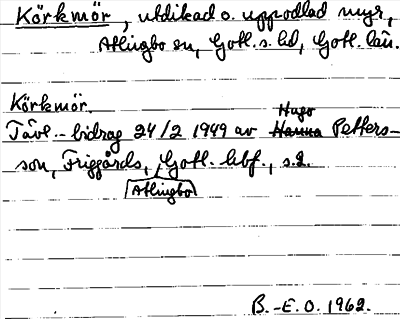 Körkmör, utdikad o. uppodlad myr,
Atlingbo sn, Gotl. s. hd, Gotl. län.
Körkmör.
Hugo
Tävl.-bidrag 24/2 1949 av Hanna Petters-
son, Friggårds, Gotl. hbf., s.2.
Atlingbo
B.-E.O. 1962.